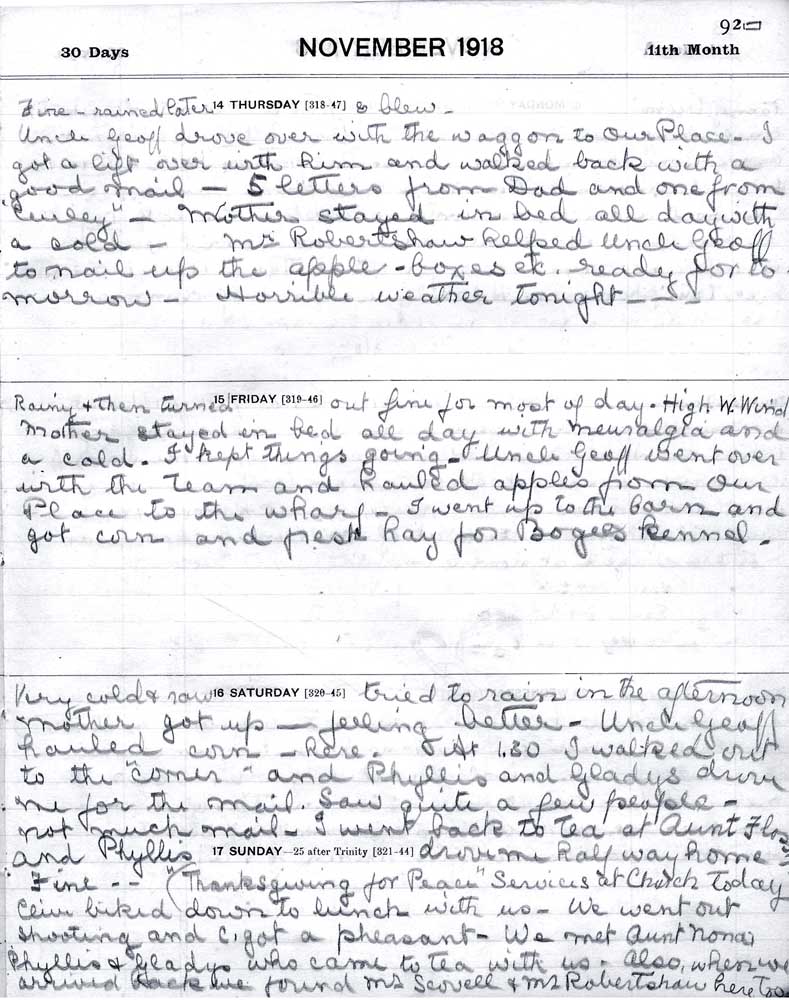 92
30 Days NOVEMBER 1918 11th Month
Fine - rained later 14 THURSDAY [318-47] & blew -
Uncle Geoff drove over with the waggon to Our Place - I
got a lift over with him and walked back with a
good mail - 5 letters from Dad and one from
"Curley" - Mother stayed in bed all day with
a cold - Mr Robertshaw helped Uncle Geoff
to nail up the apple-boxes etc. ready for to
morrow - Horrible weather tonight - - -
Rainy & then turned 15 FRIDAY [319-46] out fine for most of day. High W. Wind
Mother stayed in bed all day with neuralgia and
a cold. I kept things going - Uncle Geoff went over
with the Team and hauled apples from Our
Place to the wharf - I went up to the barn and
got corn and fresh hay for Bogees kennel.
Very cold & raw 16 SATURDAY [320-45] tried to rain in the afternoon
Mother got up - feeling better - Uncle Geoff
hauled corn - here. At 1.30 I walked out
to the "Corner" and Phyllis and Gladys drove
me for the mail. Saw quite a few people -
not much mail - I went back to Tea at Aunt Flos
and Phyllis 17 SUNDAY—25 after Trinity [321-44] drove me half way home
Fine - - "Thanksgiving for Peace" Services at Church Today
Clive biked down to lunch with us - We went out
shooting and C. got a pheasant - We met Aunt Nona,
Phyllis & Gladys who came to Tea with us. Also, when we
arrived back we found Mr Scovell & Mr Robertshaw here too